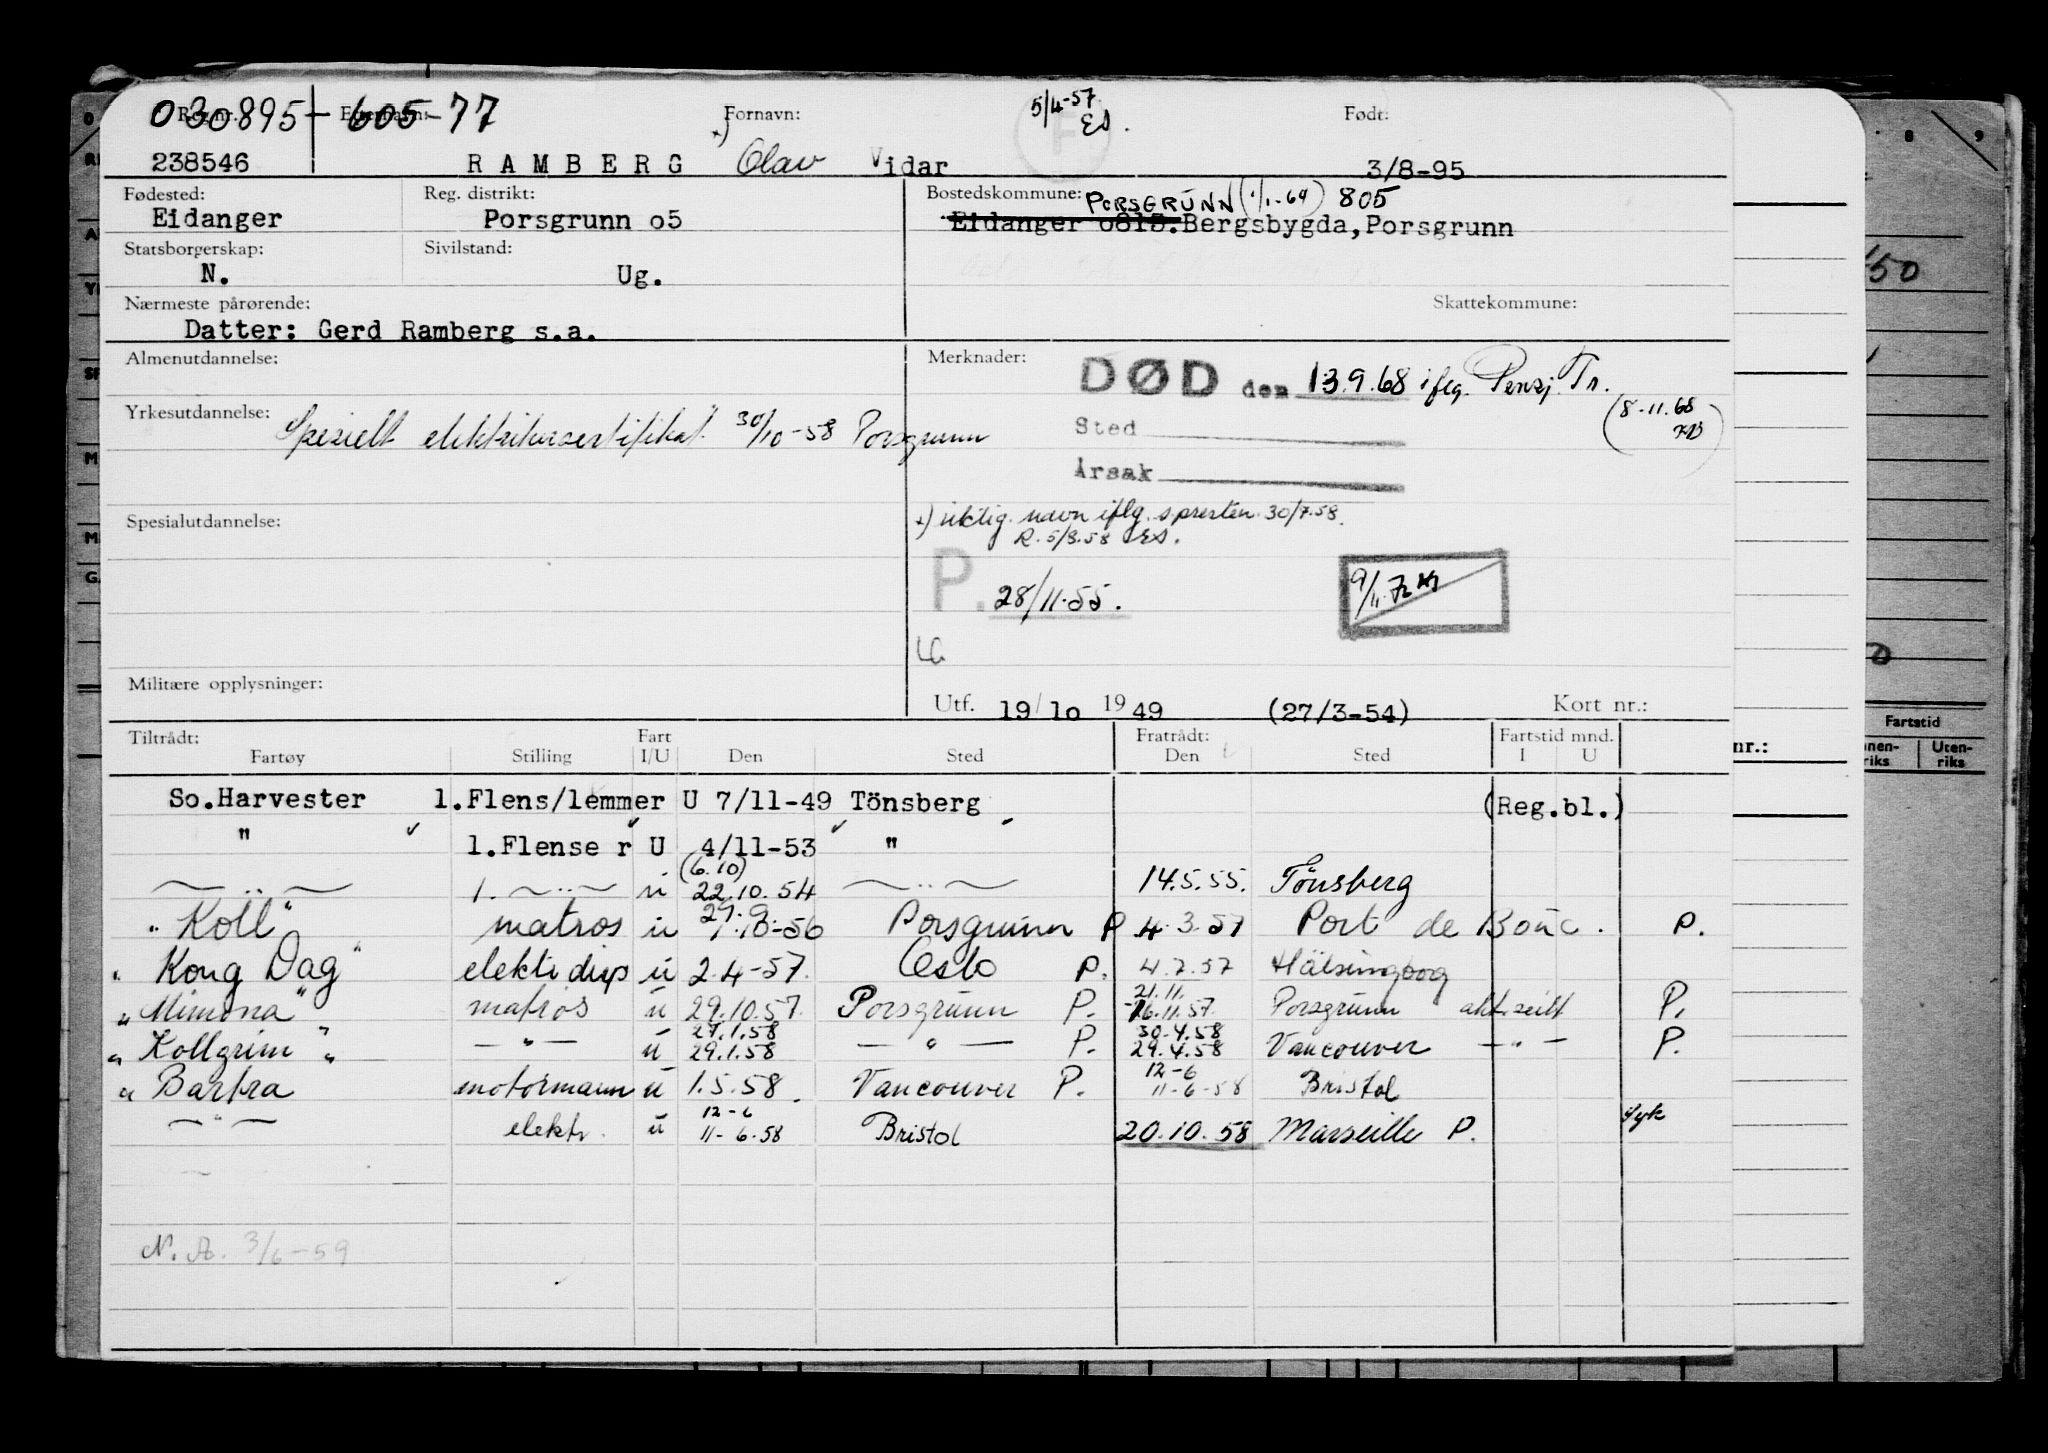 030895 605-77
Reg.nr.: Etternavn: Fornavn: 5/4-57 ES. Født:
238546 RAMBERG x) Olav Vidar 3/8-95
Fødested: Reg. distrikt: Bostedskommune: PORSGRUNN (1/1-64) 805
Eidanger Porsgrunn o5 Eidanger o815. Bergsbygda, Porsgrunn
Statsborgerskap: Sivilstand:
N. Ug.
Nærmeste pårørende: Skattekommune:
Datter: Gerd Ramberg s.a.
Almenutdannelse: Merknader: DØD den 13.9.68 iflg. Pensj. Tr.
(8-11.68
Yrkesutdannelse: Spesielt elektrikersertifikat 30/10-58 Porsgrunn
Sted
Årsak
x) riktig navn iflg. spresten 30/7.58.
R. 5/8.58 ES.
Spesialutdannelse:
P. 28/11.55. 9/11.72
LG
Militære opplysninger:
Utf. 19/10 1949 (27/3-54) Kort nr.:
Tiltrådt: Fart Fratrådt: Fartstid mnd.
Fartøy Stilling I/U Den Sted Den Sted I U
So.Harvester 1.Flens/lemmer U 7/11-49 Tönsberg (Reg.bl.)
" 1.Flenser U 4/11-53 "
(6.10)
—"— 1. —"— u 22.10.54 —"— 14.5.55. Tönsberg
29.9.
"Koll" matros u 1.10-56 Porsgrunn P 4.3.57 Port de Bouc. P.
"Kong Dag" elektr disp u 2.4-57. Oslo P. 4.7.57 Hälsingborg
21.11.
"Mimona" matros u 29.10.57. Porsgrunn P. 16.11.57. Porsgrunn akt.seilt P.
27.1.58 30.4.58
"Kollgrim" —"— u 29.1.58 —"— P. 29.4.58 Vancouver —"— P.
12-6
" Barbra motormann u 1.5.58. Vancouver P. 11-6-58 Bristol
12-6
—"— elektr. u 11-6.58 Bristol 20.10.58 Marseille P. syk
N.A. 3/6-59
nr.:
Fartstid
Uten-
riks
8 9